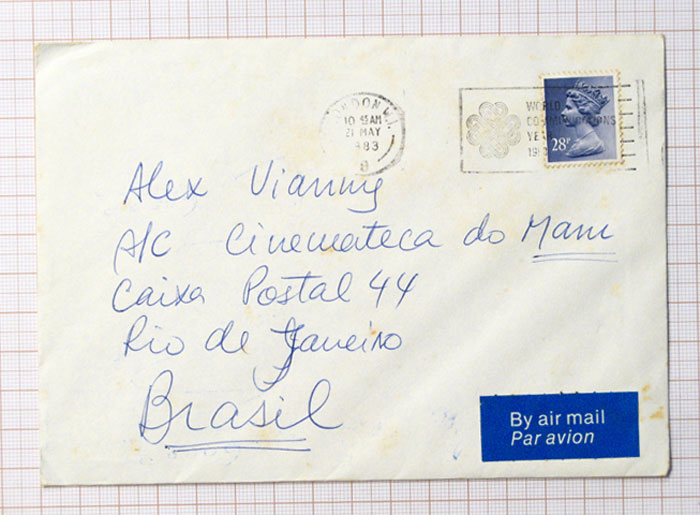 LONDON W.1.
10 15 AM
21 MAY
1983
9
WORLD
COMMUNICATIONS
YEAR
1983
28P
Alex Vianny
A/C Cinemateca do Mam
Caixa Postal 44
Rio de Janeiro
Brasil
By air mail
Par avion